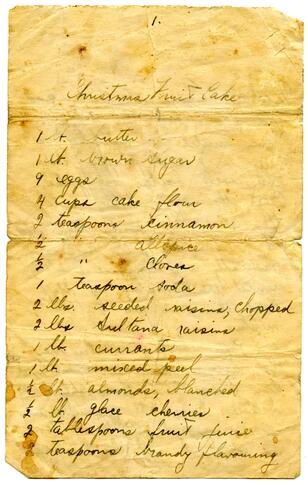 1.
Christmas Fruit Cake
1 lb. butter
1 lb. brown sugar
9 eggs
4 cups cake flour
2 teaspoons cinnamon
½ allspice
½ " cloves
1 teaspoon soda
2 lbs. seeded raisins, chopped
2 lbs Sultana raisins
1 lb. currants
1 lb. mixed peel
½ lb. almonds, blanched
½ lb. glace cherries
2 tablespoons fruit juice
2 teaspoons brandy flavouring